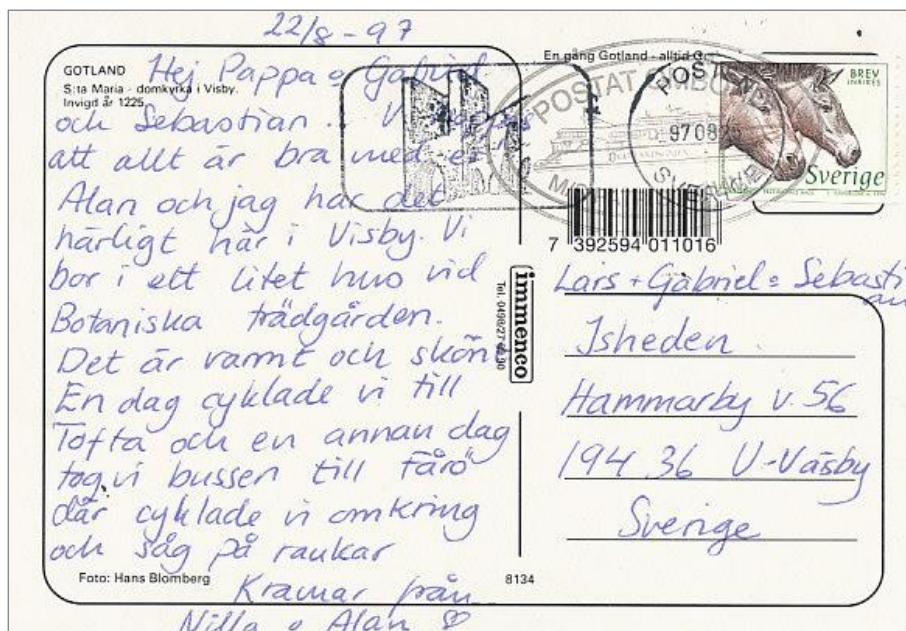 22/8-97
GOTLAND
S:ta Maria - domkyrka i Visby.
Invigd år 1225.
Hej Pappa o Gabriel
och Sebastian. Vi hoppas
att allt är bra med er!
Alan och jag har det
härligt här i Visby. Vi
bor i ett litet hus vid
Botaniska trädgården.
Det är varmt och skönt
En dag cyklade vi till
Tofta och en annan dag
tog vi bussen till Fårö
där cyklade vi omkring
och såg på raukar
Kramar från
Nilla o Alan
Foto: Hans Blomberg
8134
immenco
En gång Gotland - alltid
POSTAT OMBORD
9708
BREV
INRIKES
Sverige
7 392594 011016
Lars + Gabriel o Sebasti
an
Isheden
Hammarby v. 56
194 36 U-Väsby
Sverige